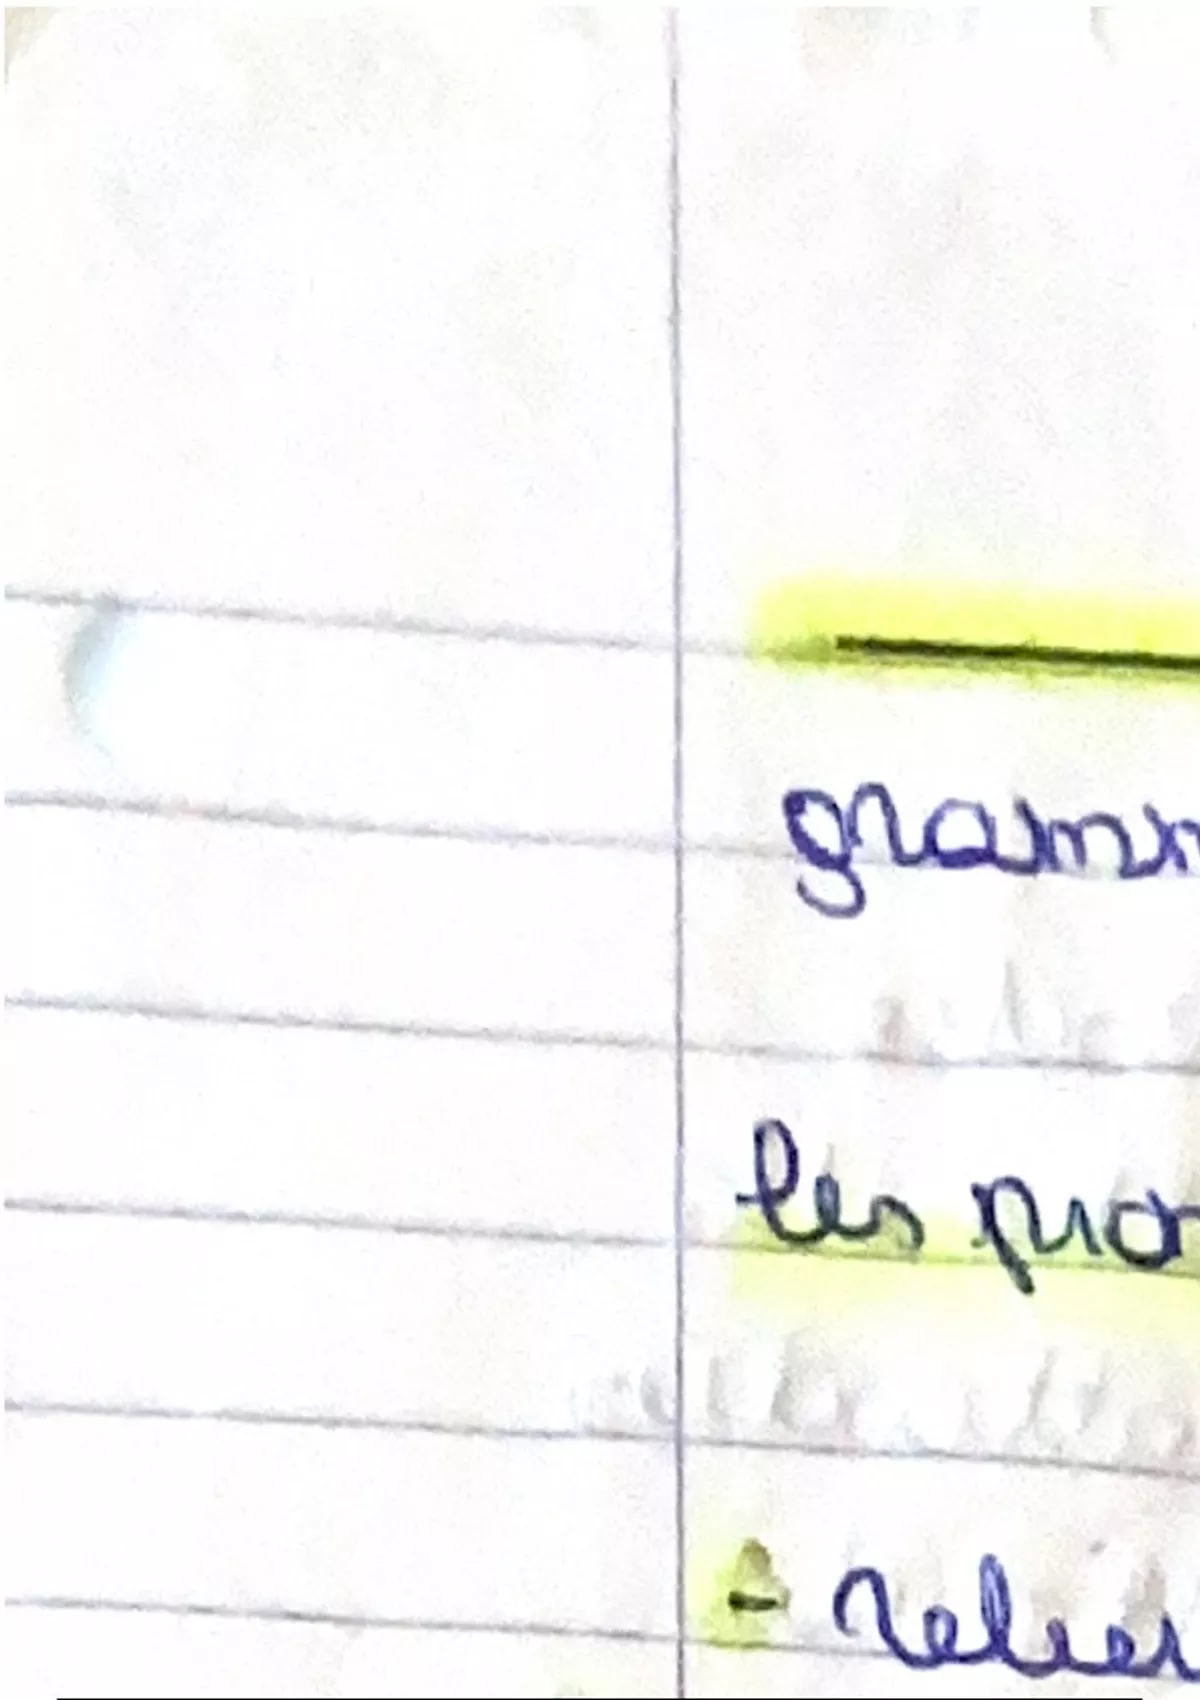 gramm
les pro
- relier